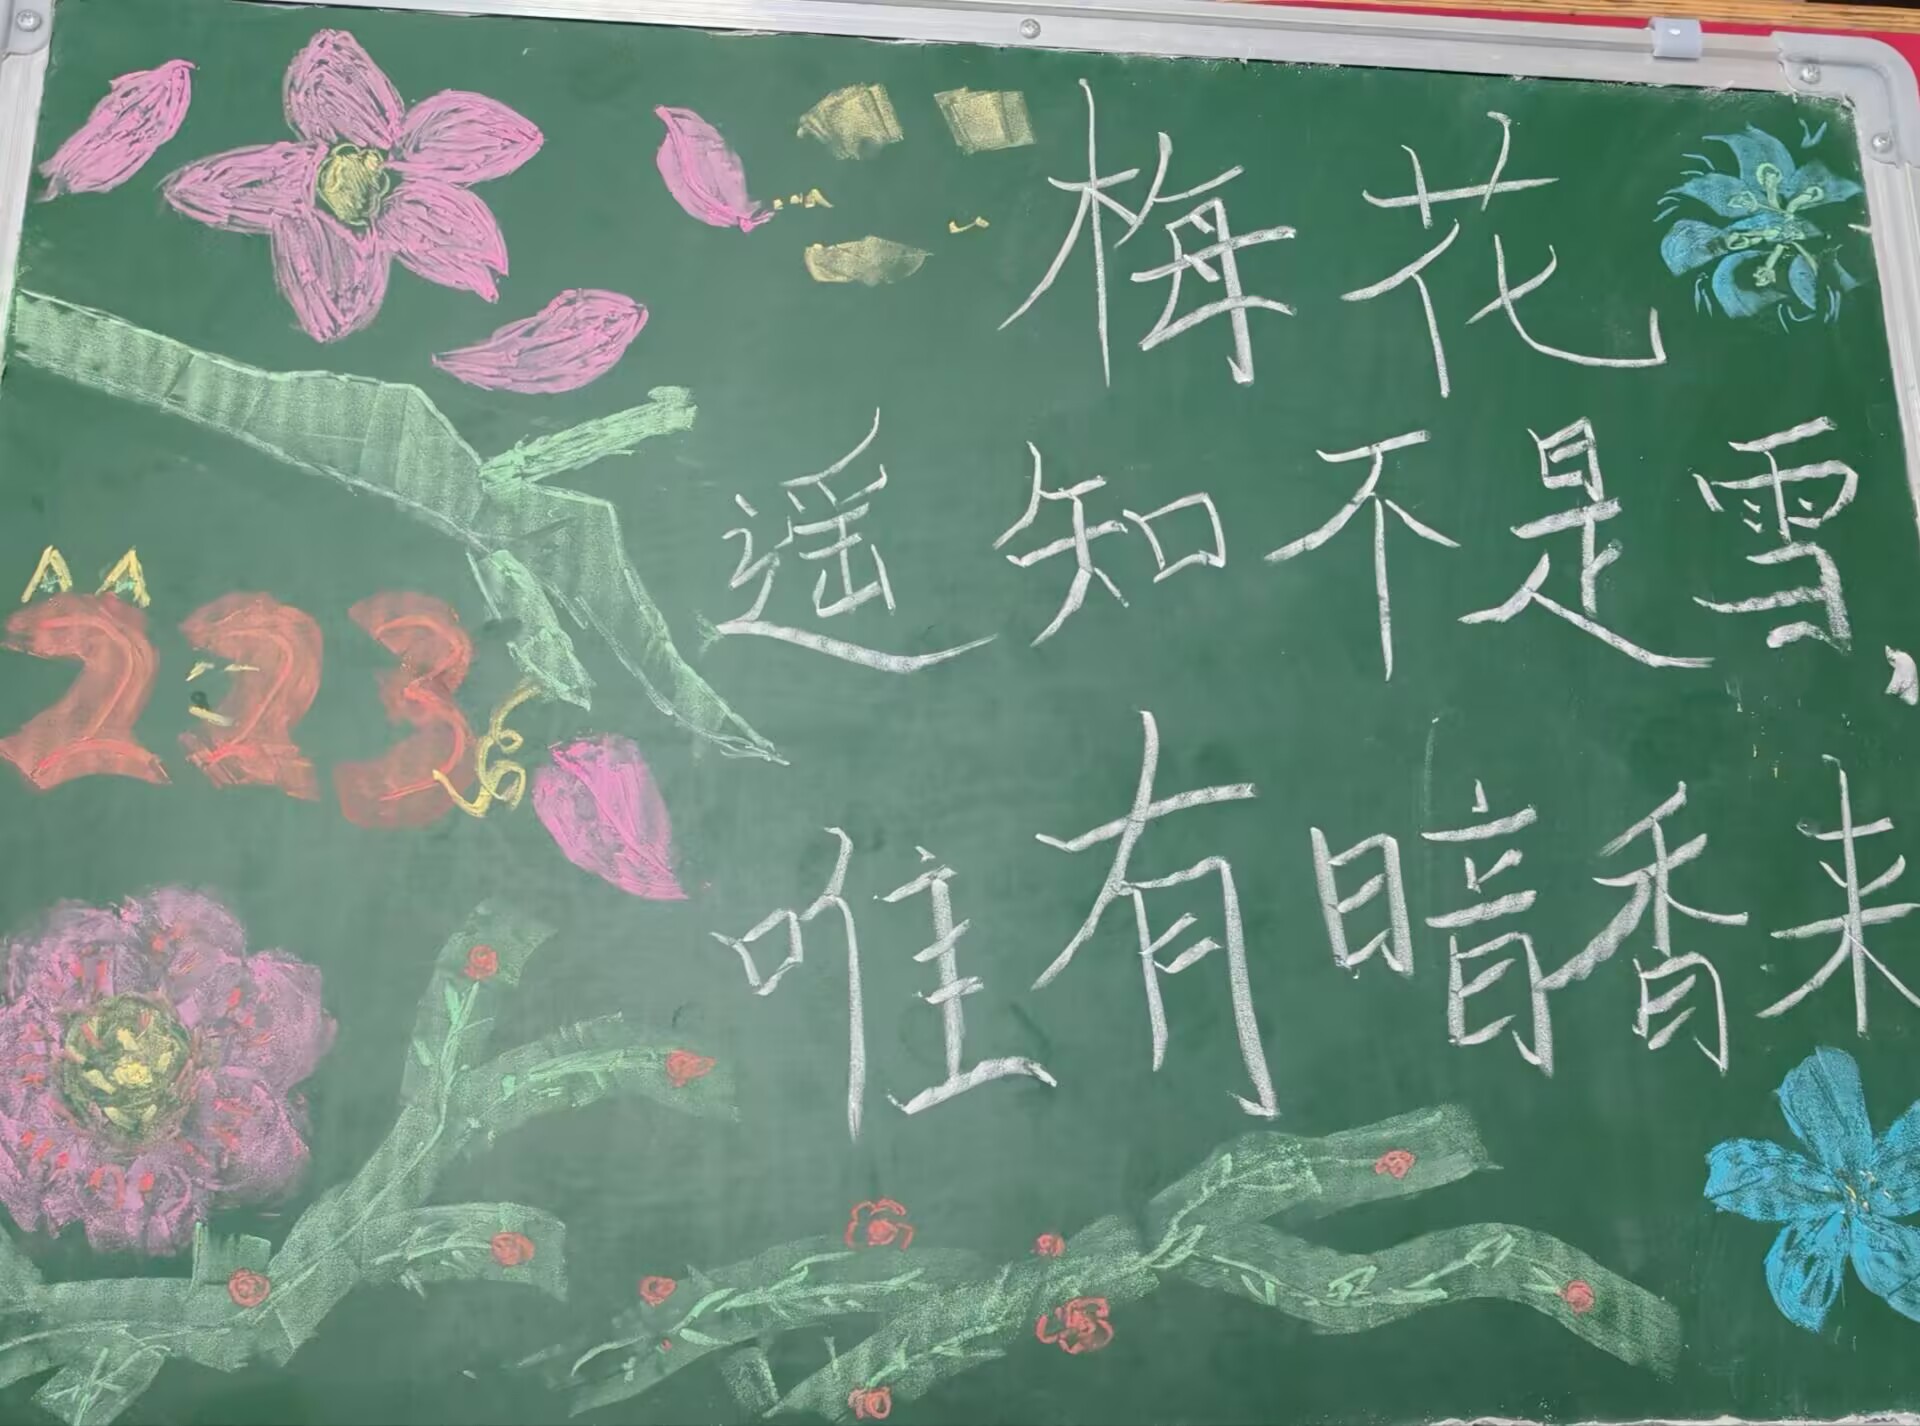 梅花
遥知不是雪，
唯有暗香来
223